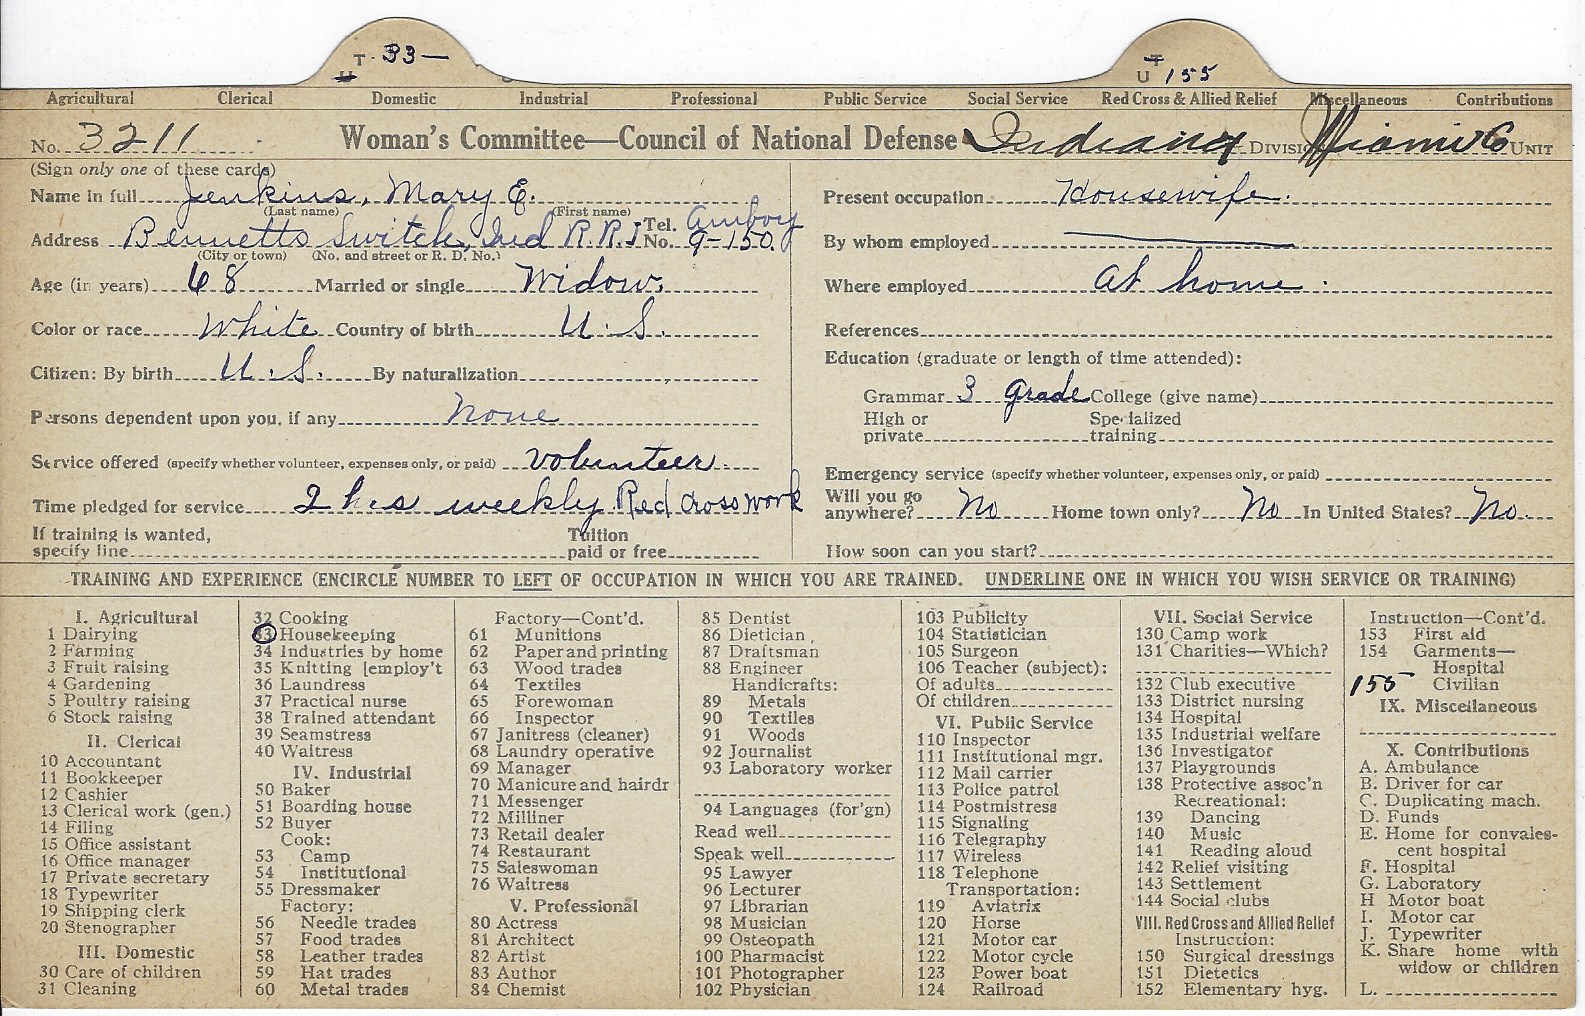 T 33—
U
T
U 155
Agricultural Clerical Domestic Industrial Professional Public Service Social Service Red Cross & Allied Relief Miscellaneous Contributions
No. 3211 Woman's Committee—Council of National Defense Indiana DIVISION Miami Co UNIT
(Sign only one of these cards)
Name in full Jenkins, Mary E.
(Last name) (First name)
Address Bennetts Switch, Ind R.R.1 Tel. No. Amboy 9-150.
(City or town) (No. and street or R. D. No.)
Age (in years) 68 Married or single Widow.
Color or race White Country of birth U.S.
Citizen: By birth U.S. By naturalization
Persons dependent upon you, if any None
Service offered (specify whether volunteer, expenses only, or paid) Volunteer.
Time pledged for service 2 hrs weekly Red Cross work
If training is wanted, specify line Tuition paid or free
Present occupation Housewife.
By whom employed
Where employed At home.
References
Education (graduate or length of time attended):
Grammar 3 grade College (give name)
High or private Specialized training
Emergency service (specify whether volunteer, expenses only, or paid)
Will you go anywhere? No Home town only? No In United States? No.
How soon can you start?
TRAINING AND EXPERIENCE (ENCIRCLE NUMBER TO LEFT OF OCCUPATION IN WHICH YOU ARE TRAINED. UNDERLINE ONE IN WHICH YOU WISH SERVICE OR TRAINING)
I. Agricultural
1 Dairying
2 Farming
3 Fruit raising
4 Gardening
5 Poultry raising
6 Stock raising
II. Clerical
10 Accountant
11 Bookkeeper
12 Cashier
13 Clerical work (gen.)
14 Filing
15 Office assistant
16 Office manager
17 Private secretary
18 Typewriter
19 Shipping clerk
20 Stenographer
III. Domestic
30 Care of children
31 Cleaning
32 Cooking
33 Housekeeping
34 Industries by home
35 Knitting [employ't
36 Laundress
37 Practical nurse
38 Trained attendant
39 Seamstress
40 Waitress
IV. Industrial
50 Baker
51 Boarding house
52 Buyer
Cook:
53 Camp
54 Institutional
55 Dressmaker
Factory:
56 Needle trades
57 Food trades
58 Leather trades
59 Hat trades
60 Metal trades
Factory—Cont'd.
61 Munitions
62 Paper and printing
63 Wood trades
64 Textiles
65 Forewoman
66 Inspector
67 Janitress (cleaner)
68 Laundry operative
69 Manager
70 Manicure and hairdr
71 Messenger
72 Milliner
73 Retail dealer
74 Restaurant
75 Saleswoman
76 Waitress
V. Professional
80 Actress
81 Architect
82 Artist
83 Author
84 Chemist
85 Dentist
86 Dietician
87 Draftsman
88 Engineer
Handicrafts:
89 Metals
90 Textiles
91 Woods
92 Journalist
93 Laboratory worker
94 Languages (for'gn)
Read well
Speak well
95 Lawyer
96 Lecturer
97 Librarian
98 Musician
99 Osteopath
100 Pharmacist
101 Photographer
102 Physician
103 Publicity
104 Statistician
105 Surgeon
106 Teacher (subject):
Of adults
Of children
VI. Public Service
110 Inspector
111 Institutional mgr.
112 Mail carrier
113 Police patrol
114 Postmistress
115 Signaling
116 Telegraphy
117 Wireless
118 Telephone
Transportation:
119 Aviatrix
120 Horse
121 Motor car
122 Motor cycle
123 Power boat
124 Railroad
VII. Social Service
130 Camp work
131 Charities—Which?
132 Club executive
133 District nursing
134 Hospital
135 Industrial welfare
136 Investigator
137 Playgrounds
138 Protective assoc'n
Recreational:
139 Dancing
140 Music
141 Reading aloud
142 Relief visiting
143 Settlement
144 Social clubs
VIII. Red Cross and Allied Relief
Instruction:
150 Surgical dressings
151 Dietetics
152 Elementary hyg.
Instruction—Cont'd.
153 First aid
154 Garments—
Hospital
155 Civilian
IX. Miscellaneous
X. Contributions
A. Ambulance
B. Driver for car
C. Duplicating mach.
D. Funds
E. Home for convales-
cent hospital
F. Hospital
G. Laboratory
H Motor boat
I. Motor car
J. Typewriter
K. Share home with
widow or children
L.